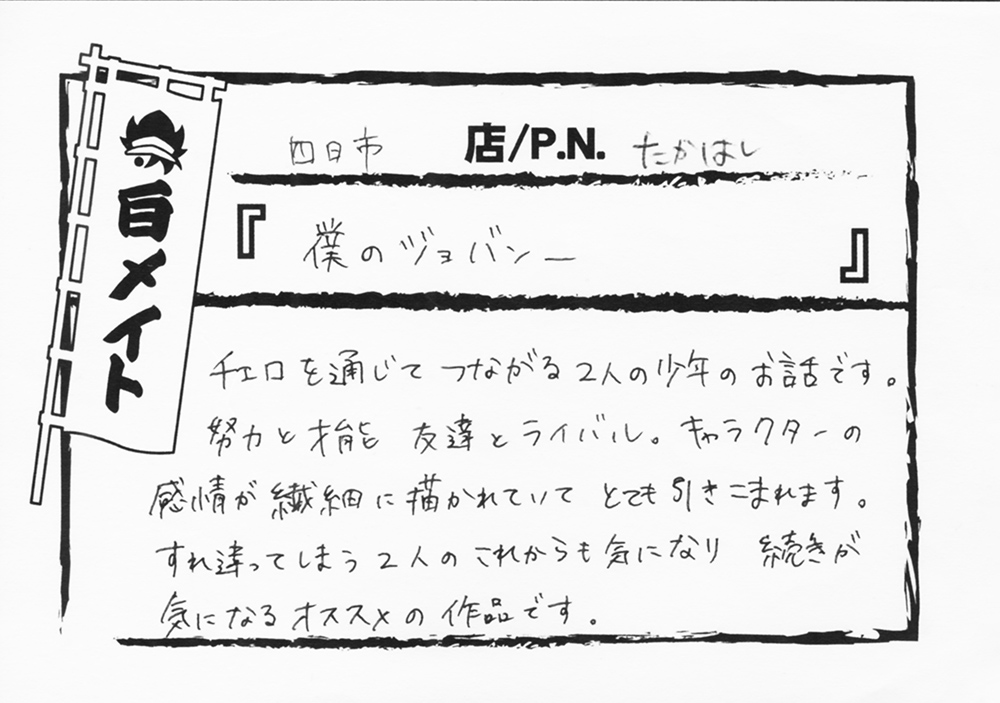 四日市 店/P.N. たかはし
百メイト
『僕のジョバンニ』
チェロを通じてつながる2人の少年のお話です。
努力と才能 友達とライバル。キャラクターの
感情が繊細に描かれていて とても引きこまれます。
すれ違ってしまう2人のこれからも気になり 続きが
気になるオススメの作品です。